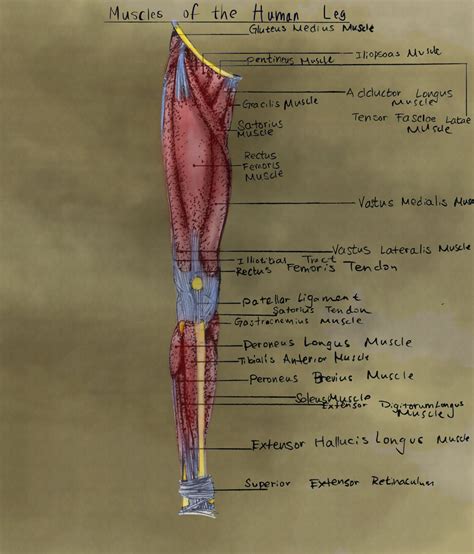 Muscles of the Human Leg
Gluteus Medius Muscle
Iliopsoas Muscle
pentineus Muscle
Adductor Longus
Muscle
Gracilis Muscle
Tencor Fasciae Latae
Muscle
Satorius
Muscle
Rectus
Femoris
Muscle
Vastus Medialis Muscle
Vastus Lateralis Muscle
Illiotibial Tract
Rectus Femoris Tendon
patellar Ligament
Satorius Tendon
Gastrocnemius Muscle
Peroneus Longus Muscle
Tibialis Anterior Muscle
Peroneus Brevius Muscle
Soleus Muscle
Extensor Digitorum Longus
Muscle
Extensor Hallucis Longus Muscle
Superior Extensor Retinaculum